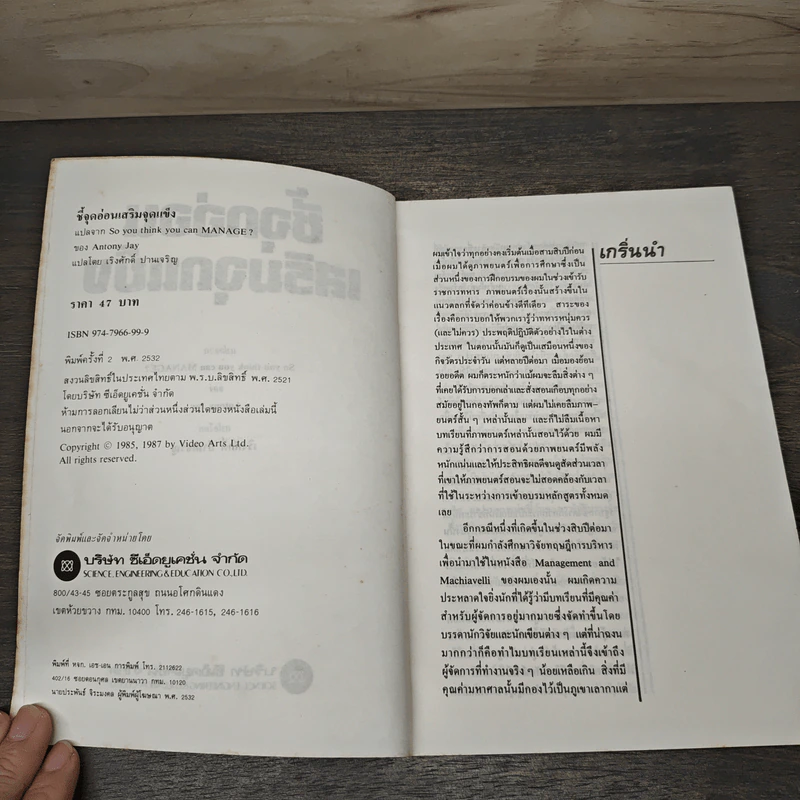 ชี้จุดอ่อนเสริมจุดแข็ง
แปลจาก So you think you can MANAGE?
ของ Antony Jay
แปลโดย เริงศักดิ์ ปานเจริญ
ราคา 47 บาท
ISBN 974-7966-99-9
พิมพ์ครั้งที่ 2 พ.ศ. 2532
สงวนลิขสิทธิ์ในประเทศไทยตาม พ.ร.บ.ลิขสิทธิ์ พ.ศ. 2521
โดยบริษัท ซีเอ็ดยูเคชั่น จำกัด
ห้ามการลอกเลียนไม่ว่าส่วนหนึ่งส่วนใดของหนังสือเล่มนี้
นอกจากจะได้รับอนุญาต
Copyright © 1985, 1987 by Video Arts Ltd.
All rights reserved.
จัดพิมพ์และจัดจำหน่ายโดย
บริษัท ซีเอ็ดยูเคชั่น จำกัด
SCIENCE, ENGINEERING & EDUCATION CO.,LTD.
800/43-45 ซอยตระกูลสุข ถนนอโศกดินแดง
เขตห้วยขวาง กทม. 10400 โทร. 246-1615, 246-1616
พิมพ์ที่ หจก. เอช-เอน การพิมพ์ โทร. 2112622
402/16 ซอยดอนกุศล เขตยานนาวา กทม. 10120
นายประพันธ์ จิระมงคล ผู้พิมพ์ผู้โฆษณา พ.ศ. 2532
เกริ่นนำ
ผมเข้าใจว่าทุกอย่างคงเริ่มต้นเมื่อสามสิบปีก่อน
เมื่อผมได้ดูภาพยนตร์เพื่อการศึกษาซึ่งเป็น
ส่วนหนึ่งของการฝึกอบรมของผมในช่วงเข้ารับ
ราชการทหาร ภาพยนตร์เรื่องนั้นสร้างขึ้นใน
แนวตลกที่จัดว่าค่อนข้างดีทีเดียว สาระของ
เรื่องคือการบอกให้พวกเรารู้ว่าทหารหนุ่มควร
(และไม่ควร) ประพฤติปฏิบัติตัวอย่างไรในต่าง
ประเทศ ในตอนนั้นมันก็ดูเป็นเสมือนหนึ่งของ
กิจวัตรประจำวัน แต่หลายปีต่อมา เมื่อมองย้อน
รอยอดีต ผมก็ตระหนักว่าแม้ผมจะลืมสิ่งต่าง ๆ
ที่เคยได้รับการบอกเล่าและสั่งสอนเกือบทุกอย่าง
สมัยอยู่ในกองทัพก็ตาม แต่ผมไม่เคยลืมภาพ-
ยนตร์สั้น ๆ เหล่านั้นเลย และก็ไม่ลืมเนื้อหา
บทเรียนที่ภาพยนตร์เหล่านั้นสอนไว้ด้วย ผมมี
ความรู้สึกว่าการสอนด้วยภาพยนตร์มีพลัง
หนักแน่นและให้ประสิทธิผลดีจนดูสัดส่วนเวลา
ที่เขาให้ภาพยนตร์สอนจะไม่สอดคล้องกับเวลา
ที่ใช้ในระหว่างการเข้าอบรมหลักสูตรทั้งหมด
เลย
อีกกรณีหนึ่งที่เกิดขึ้นในช่วงสิบปีต่อมา
ในขณะที่ผมกำลังศึกษาวิจัยทฤษฎีการบริหาร
เพื่อนำมาใช้ในหนังสือ Management and
Machiavelli ของผมเองนั้น ผมเกิดความ
ประหลาดใจยิ่งนักที่ได้รู้ว่ามีบทเรียนที่มีคุณค่า
สำหรับผู้จัดการอยู่มากมายซึ่งจัดทำขึ้นโดย
บรรดานักวิจัยและนักเขียนต่าง ๆ แต่ที่น่าฉงน
มากกว่าก็คือทำไมบทเรียนเหล่านี้จึงเข้าถึง
ผู้จัดการที่ทำงานจริง ๆ น้อยเหลือเกิน สิ่งที่มี
คุณค่ามหาศาลนั้นมีกองไว้เป็นภูเขาเลากาแต่